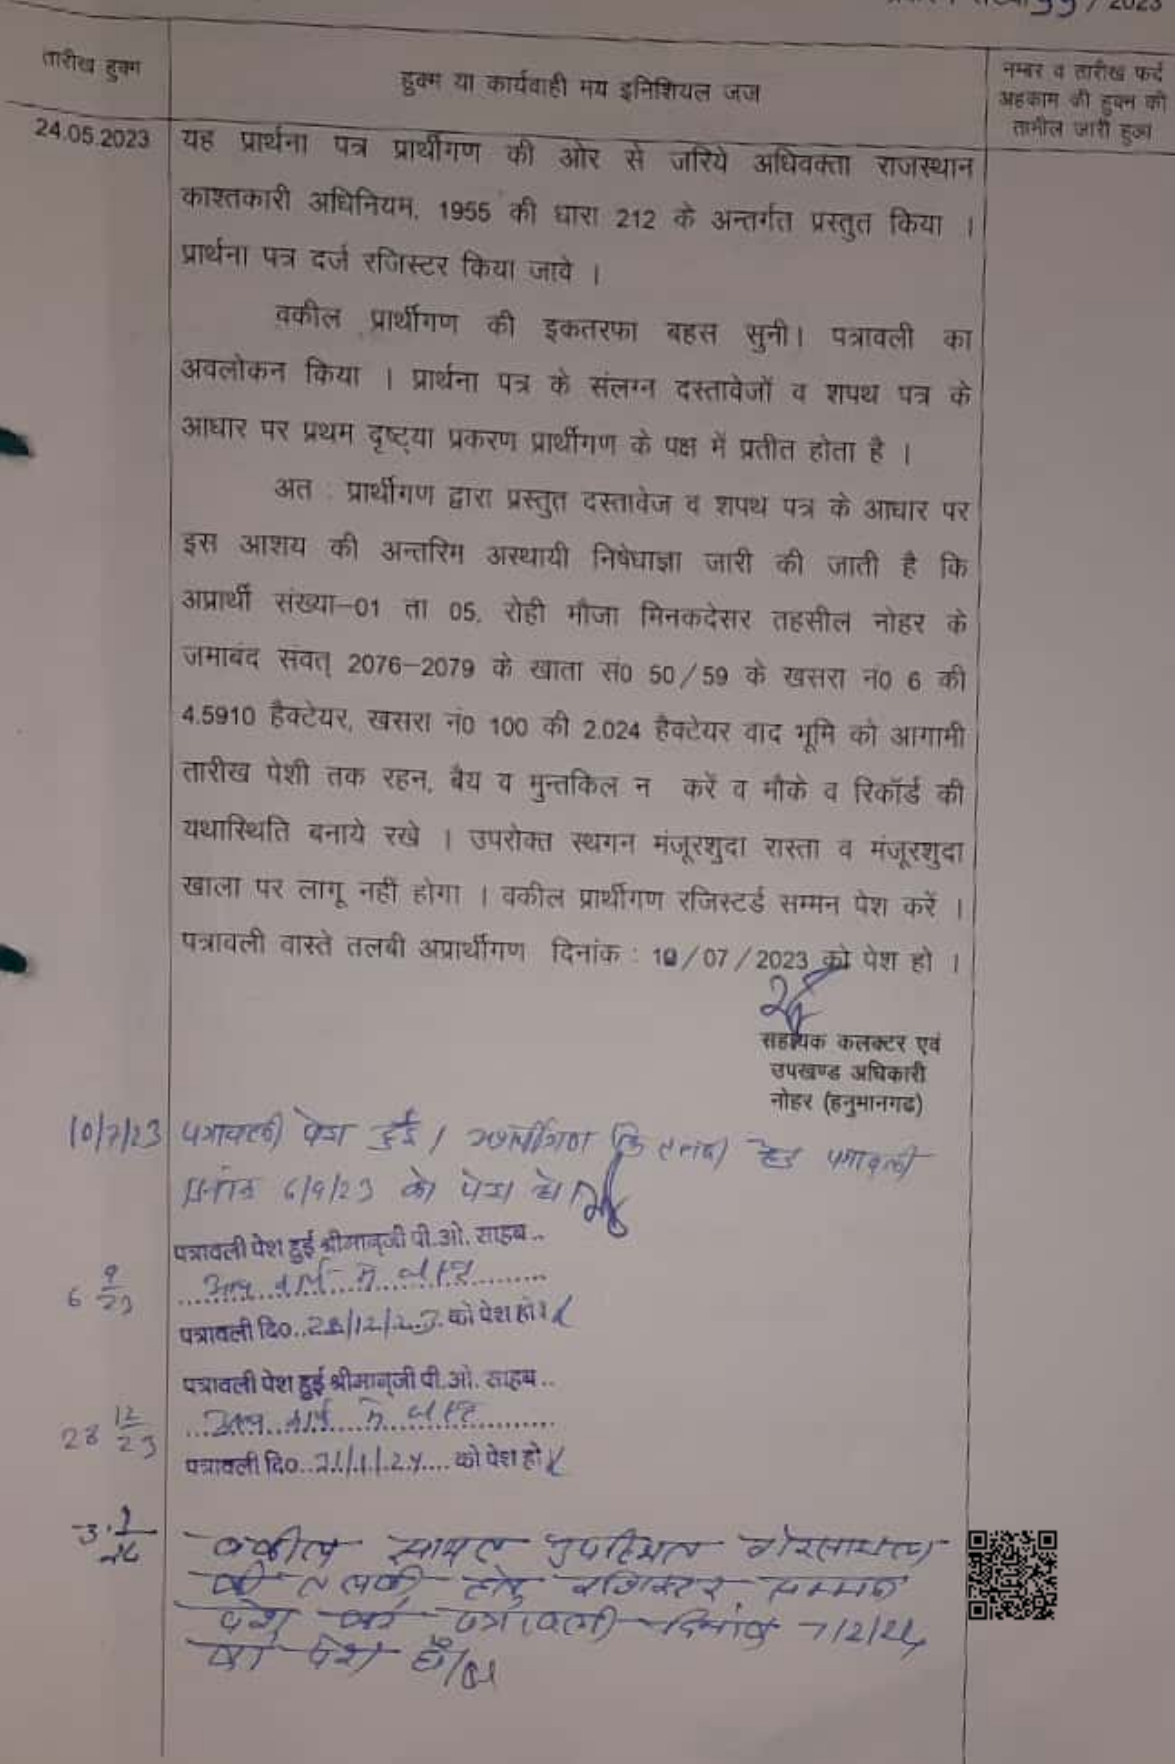 / 2023
तारीख हुक्म
हुक्म या कार्यवाही मय इनिशियल जज
नम्बर व तारीख फर्द
अहकाम की हुक्म की
तामील जारी हुआ
24.05.2023
यह प्रार्थना पत्र प्रार्थीगण की ओर से जरिये अधिवक्ता राजस्थान
काश्तकारी अधिनियम, 1955 की धारा 212 के अन्तर्गत प्रस्तुत किया ।
प्रार्थना पत्र दर्ज रजिस्टर किया जावे ।
वकील प्रार्थीगण की इकतरफा बहस सुनी। पत्रावली का
अवलोकन किया । प्रार्थना पत्र के संलग्न दस्तावेजों व शपथ पत्र के
आधार पर प्रथम दृष्ट्या प्रकरण प्रार्थीगण के पक्ष में प्रतीत होता है ।
अत : प्रार्थीगण द्वारा प्रस्तुत दस्तावेज व शपथ पत्र के आधार पर
इस आशय की अन्तरिम अस्थायी निषेधाज्ञा जारी की जाती है कि
अप्रार्थी संख्या–01 ता 05, रोही मौजा मिनकदेसर तहसील नोहर के
जमाबंद संवत् 2076–2079 के खाता सं0 50/59 के खसरा नं0 6 की
4.5910 हैक्टेयर, खसरा नं0 100 की 2.024 हैक्टेयर वाद भूमि को आगामी
तारीख पेशी तक रहन, बैय व मुन्तकिल न करें व मौके व रिकॉर्ड की
यथास्थिति बनाये रखे । उपरोक्त स्थगन मंजूरशुदा रास्ता व मंजूरशुदा
खाला पर लागू नहीं होगा । वकील प्रार्थीगण रजिस्टर्ड सम्मन पेश करें ।
पत्रावली वास्ते तलबी अप्रार्थीगण दिनांक : 10/07/2023 को पेश हो ।
सहायक कलक्टर एवं
उपखण्ड अधिकारी
नोहर (हनुमानगढ)
10/7/23 पत्रावली पेश हुई। अप्रार्थीगण कि तलबी हेतु पत्रावली
दिनांक 6/9/23 को पेश हो
पत्रावली पेश हुई श्रीमान्जी पी.ओ. साहब..
6 9/23 अन्य कार्य में व्यस्त
पत्रावली दि0..28/12/23. को पेश हो।
पत्रावली पेश हुई श्रीमान्जी पी.ओ. साहब..
28 12/23 अन्य कार्य में व्यस्त
पत्रावली दि0.. को पेश हो
वकील सायल उपस्थित गैरसायल
की तलबी हेतु रजिस्टर सम्मन
पेश करे पत्रावली दिनांक 7/2/24
को पेश हो